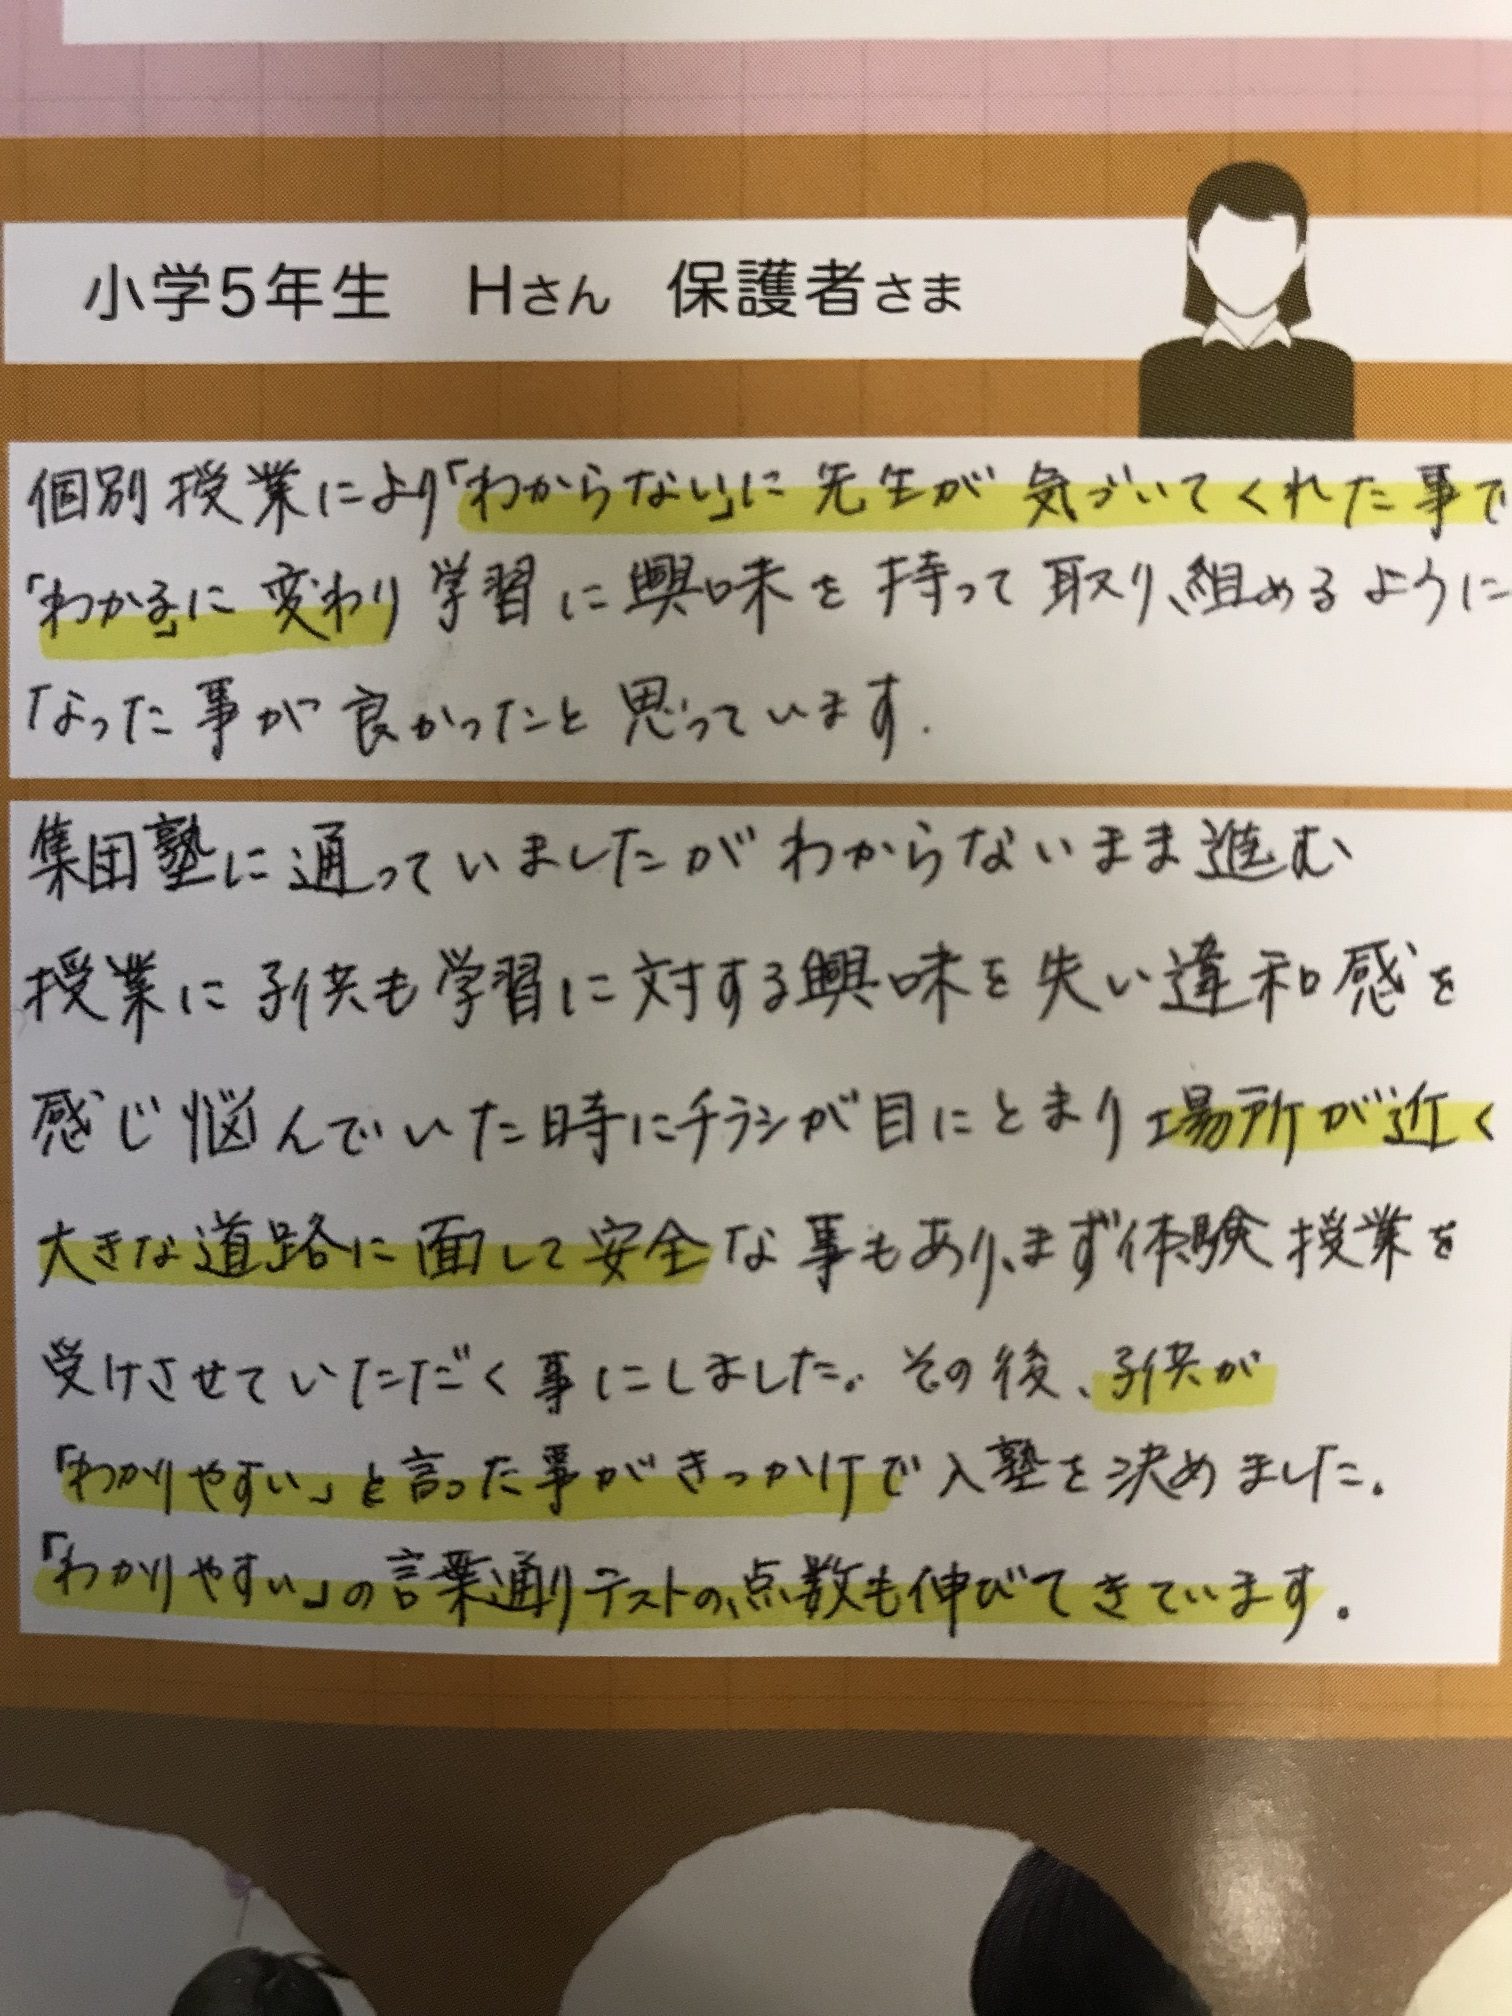 小学5年生 Hさん 保護者さま
個別授業により「わからない」に先生が気づいてくれた事で
「わかる」に変わり学習に興味を持って取り組めるように
なった事が良かったと思っています.
集団塾に通っていましたがわからないまま進む
授業に子供も学習に対する興味を失い違和感を
感じ悩んでいた時にチラシが目にとまり場所が近く
大きな道路に面して安全な事もあり、まず体験授業を
受けさせていただく事にしました。その後、子供が
「わかりやすい」と言った事がきっかけで入塾を決めました.
「わかりやすい」の言葉通りテストの点数も伸びてきています.